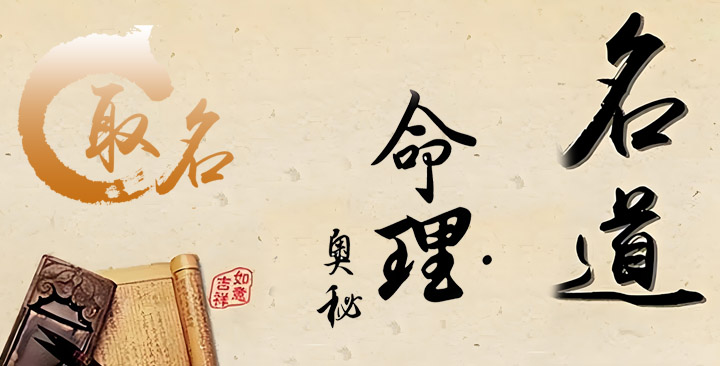 名道
命理·
奥秘
取名
如意
吉祥